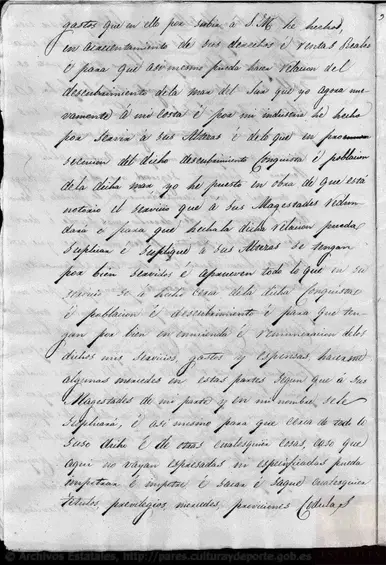 gastos que en ello por servir a S. M. he hechos,
en acrecentamiento de sus derechos é rentas Reales
é para que asi mismo pueda hacer relacion del
descubrimiento dela mar del Sur que yo agora nue-
vamente á mi costa é por mi industria he hecho
por servir á sus Altezas é delo que en
secucion del dicho descubrimiento Conquista é poblacion
dela dicha mar yo he puesto en obra de que está
notorio el servicio que á sus Magestades redun-
dará é para que hecha la dicha relacion pueda
suplicar é suplique á sus Altezas se tengan
por bien servidos é aprueven todo lo que en su
servicio se á hecho cerca dela dicha Conquista
é poblacion é descubrimiento é para que ten-
gan por bien en enmienda é remuneracion delos
dichos mis servicios, gastos y espensas, hacerme
algunas mercedes en estas partes segun que á sus
Magestades de mi parte y en mi nombre sele
suplicará, é asi mismo para que cerca de todo lo
suso dicho é de otras cualesquier cosas, caso que
aqui no vayan espresadas ni especificadas pueda
impetrar é impetre é sacar é saque cualesquier
titulos previlegios, mercedes, provisiones Cedulas
© Archivos Estatales, http://pares.culturaydeporte.gob.es